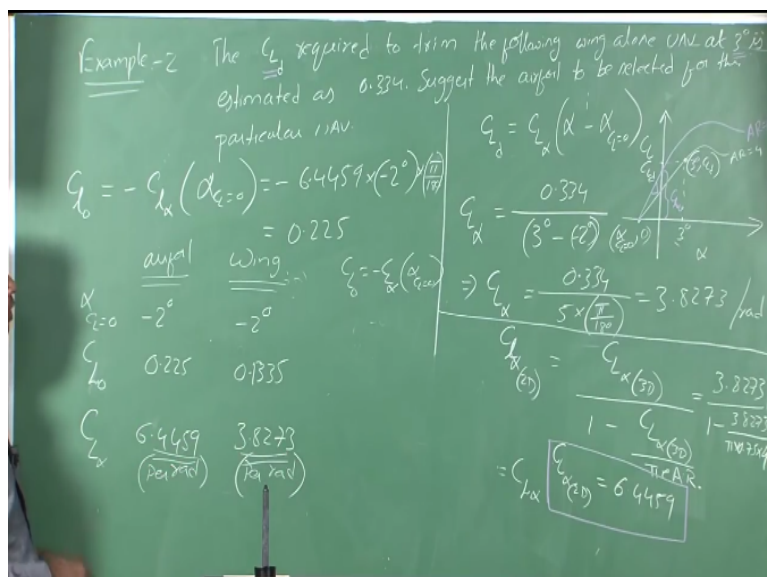 Example-2 The C_L_d required to trim the following wing alone UAV at 3° is
estimated as 0.334. Suggest the airfoil to be selected for this
particular UAV.
C_l_0 = - C_l_α (α_{C_l=0}) = - 6.4459 × (-2°) × (π/180)
= 0.225
airfoil wing
α_{C_L=0} -2° -2° C_L_0 = - C_L_α (α_{C_L=0})
C_L_0 0.225 0.1335
C_L_α 6.4459 3.8273
(per rad) (per rad)
C_L_d = C_L_α (α - α_{C_L=0})
C_L_α = 0.334 / (3° - (-2°))
⇒ C_L_α = 0.334 / 5 × (π/180) = 3.8273 /rad
C_L AR=
AR=4
(3°, C_L_d)
(α_{C_L=0}, 0) 3° α
C_L_α(2D) = C_L_α(3D) / 1 - C_L_α(3D) / πeAR. = 3.8273 / 1 - 3.8273
= C_L_α C_L_α(2D) = 6.4459